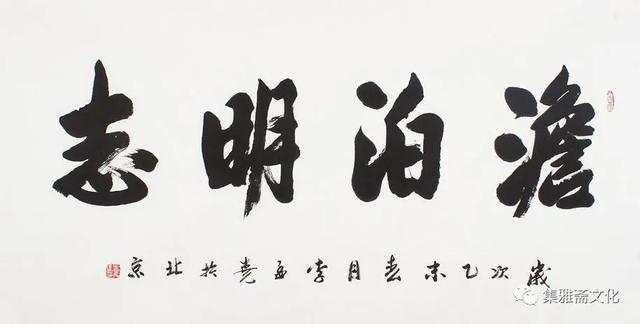 澹泊明志
歲次乙未春月李孟堯於北京
集雅斋文化